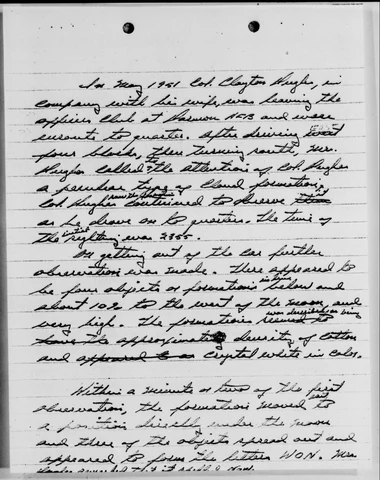 In May 1951 Col. Clayton Hughes, in
company with his wife, was leaving the
officers Club at Harmon AFB and were
enroute to quarters. After driving
four blocks, then turning south, Mrs.
Hughes called the attention of Col Hughes
a peculiar type of Cloud formation,
Col Hughes continued to observe
as he drove on to quarters. The time of
the initial sighting was 2355.
On getting out of the car further
observation was made. There appeared to
be four objects or formations below and
about 10° to the west of the moon, and
very high. The formations was described as being
approximately density of cotton
and appeared to be Crystal white in Color.
Within a minute or two of the first
observation, the formation moved to
a position directly under the moon
and three of the objects spread out and
appeared to form the letters WON. Mrs